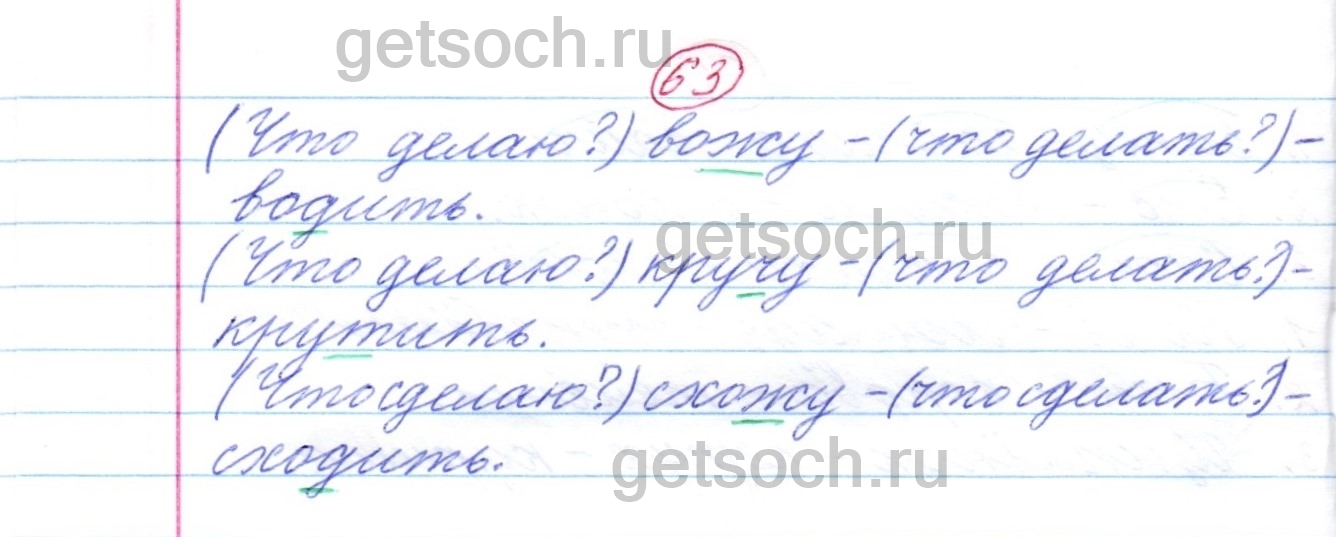 getsoch.ru
63
(Что делаю?) вожу - (что делать?) -
водить.
getsoch.ru
(Что делаю?) кручу - (что делать?) -
крутить.
(Что сделаю?) схожу - (что сделать?) -
сходить.
getsoch.ru